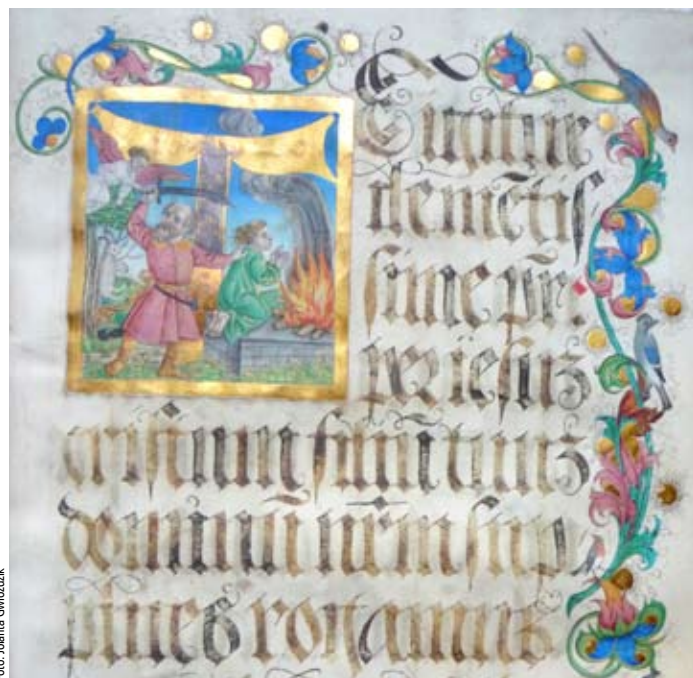 T
E igitur
clemētiſ
ſime pr̄.
per ieſuz
criſtum filiū tuuz
dominū nr̄m ſup
plices rogamus
oto: Jolanta Gwioździk